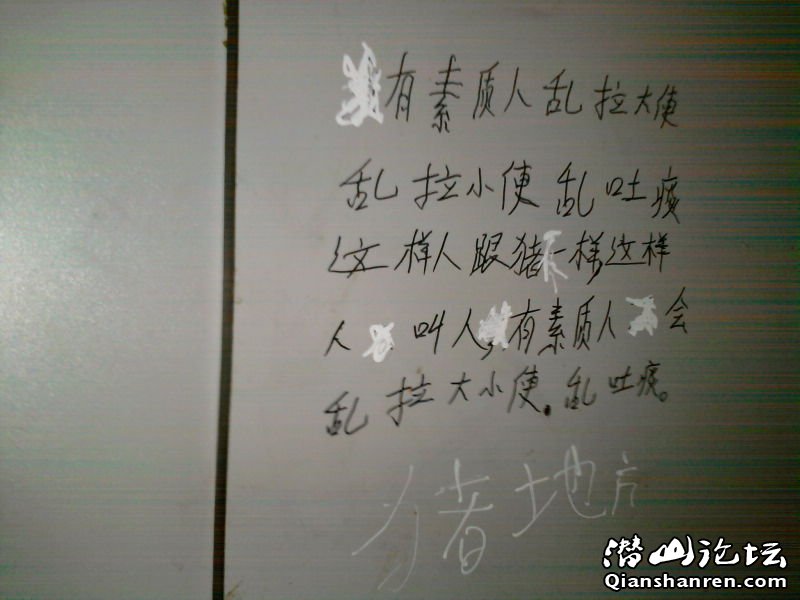 有素质人乱拉大便
乱拉小便乱吐痰
这样人跟猪一样这样
人 叫人,有素质人 会
乱拉大小便.乱吐痰。
猪地方
潜山论坛
Qianshanren.com